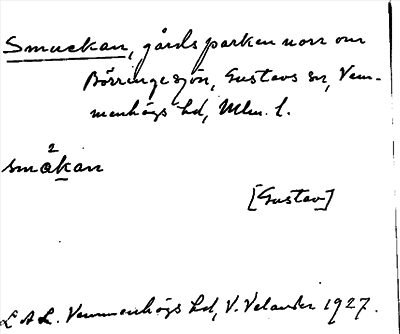 Smuckan, gårdsparken norr om
Börringesjön, Gustavs sn, Vem-
menhögs hd, Mlm. l.
2
småkan
[Gustav]
L A L. Vemmenhögs hd, V. Velander 1927.